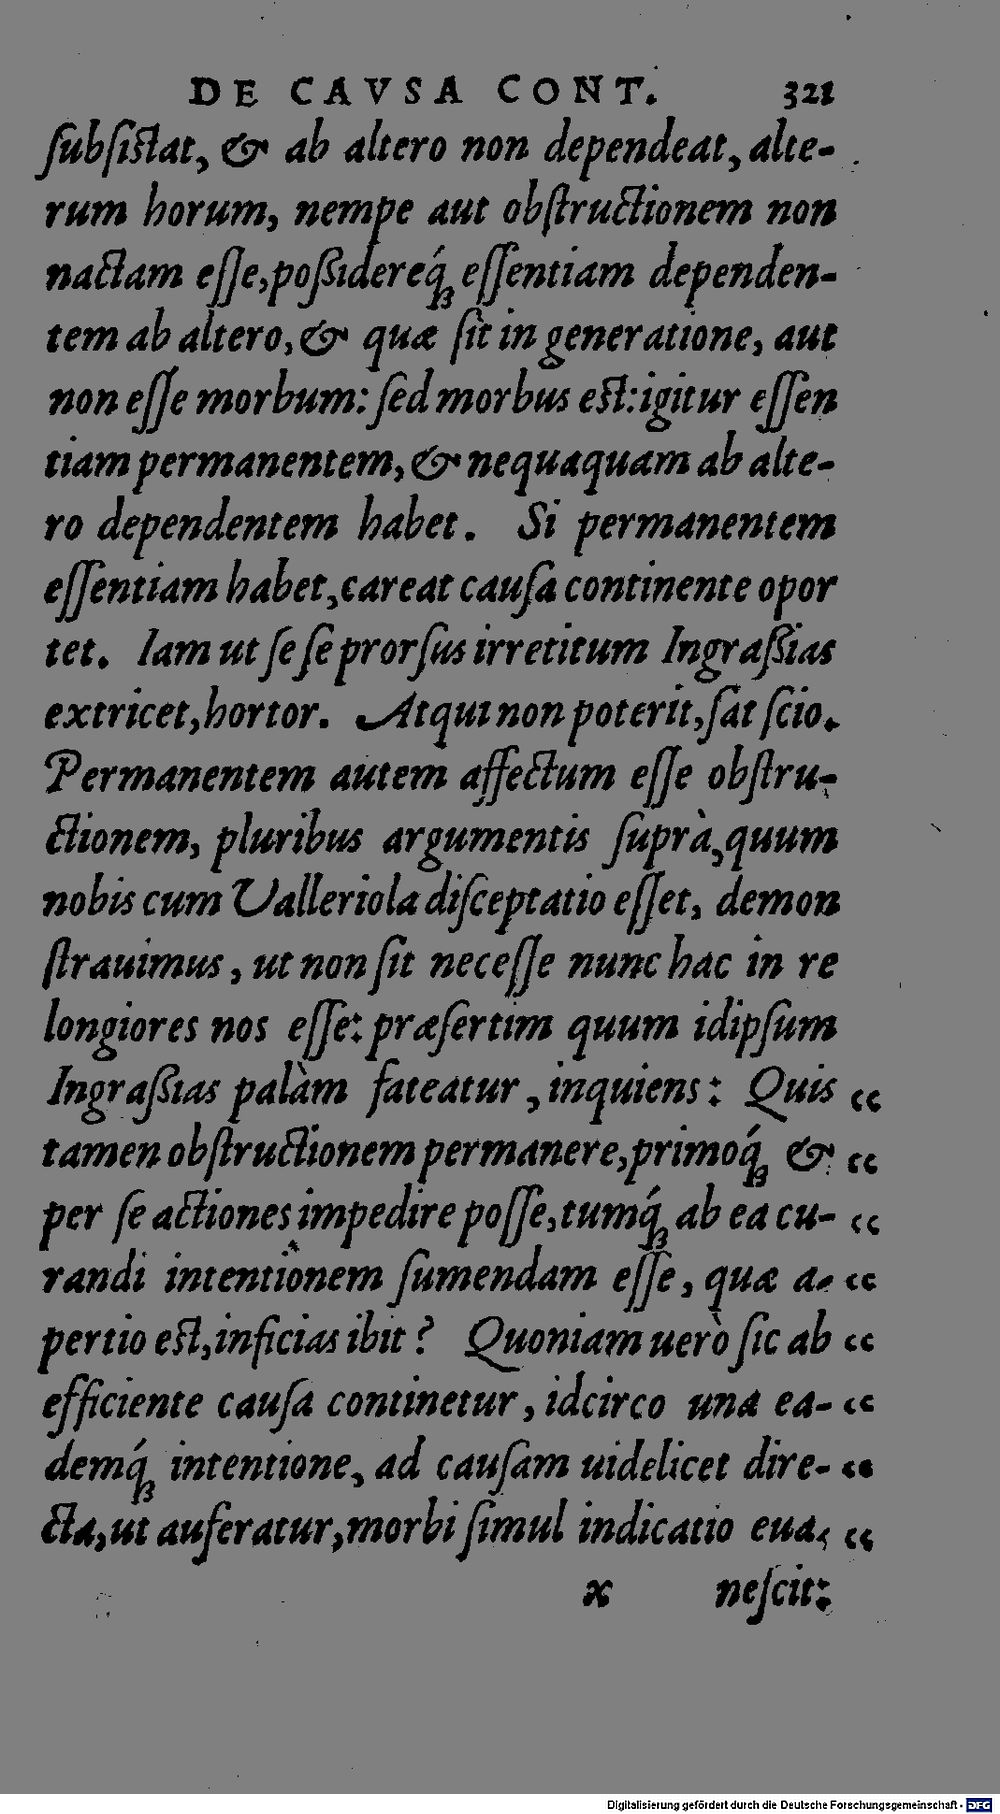 DE CAVSA CONT. 321
ſubſiſtat, & ab altero non dependeat, alte-
rum horum, nempe aut obſtructionem non
nactam eſſe, poßidereq́ꝫ eſſentiam dependen-
tem ab altero, & quæ ſit in generatione, aut
non eſſe morbum: ſed morbus eſt: igitur eſſen
tiam permanentem, & nequaquam ab alte-
ro dependentem habet. Si permanentem
eſſentiam habet, careat cauſa continente opor
tet. Iam ut ſe ſe prorſus irretitum Ingraßias
extricet, hortor. Atqui non poterit, ſat ſcio.
Permanentem autem affectum eſſe obſtru-
ctionem, pluribus argumentis ſuprà, quum
nobis cum Valleriola diſceptatio eſſet, demon
ſtrauimus, ut non ſit neceſſe nunc hac in re
longiores nos eſſe: præſertim quum idipſum
Ingraßias palàm fateatur, inquiens: Quis “
tamen obſtructionem permanere, primoq́ꝫ & “
per ſe actiones impedire poſſe, tumq́ꝫ ab ea cu- “
randi intentionem ſumendam eſſe, quæ a- “
pertio eſt, inficias ibit? Quoniam uerò ſic ab “
efficiente cauſa continetur, idcirco una ea- “
demq́ꝫ intentione, ad cauſam uidelicet dire- “
cta, ut auferatur, morbi ſimul indicatio eua- “
x neſcit:
Digitalisierung gefördert durch die Deutsche Forschungsgemeinschaft - DFG